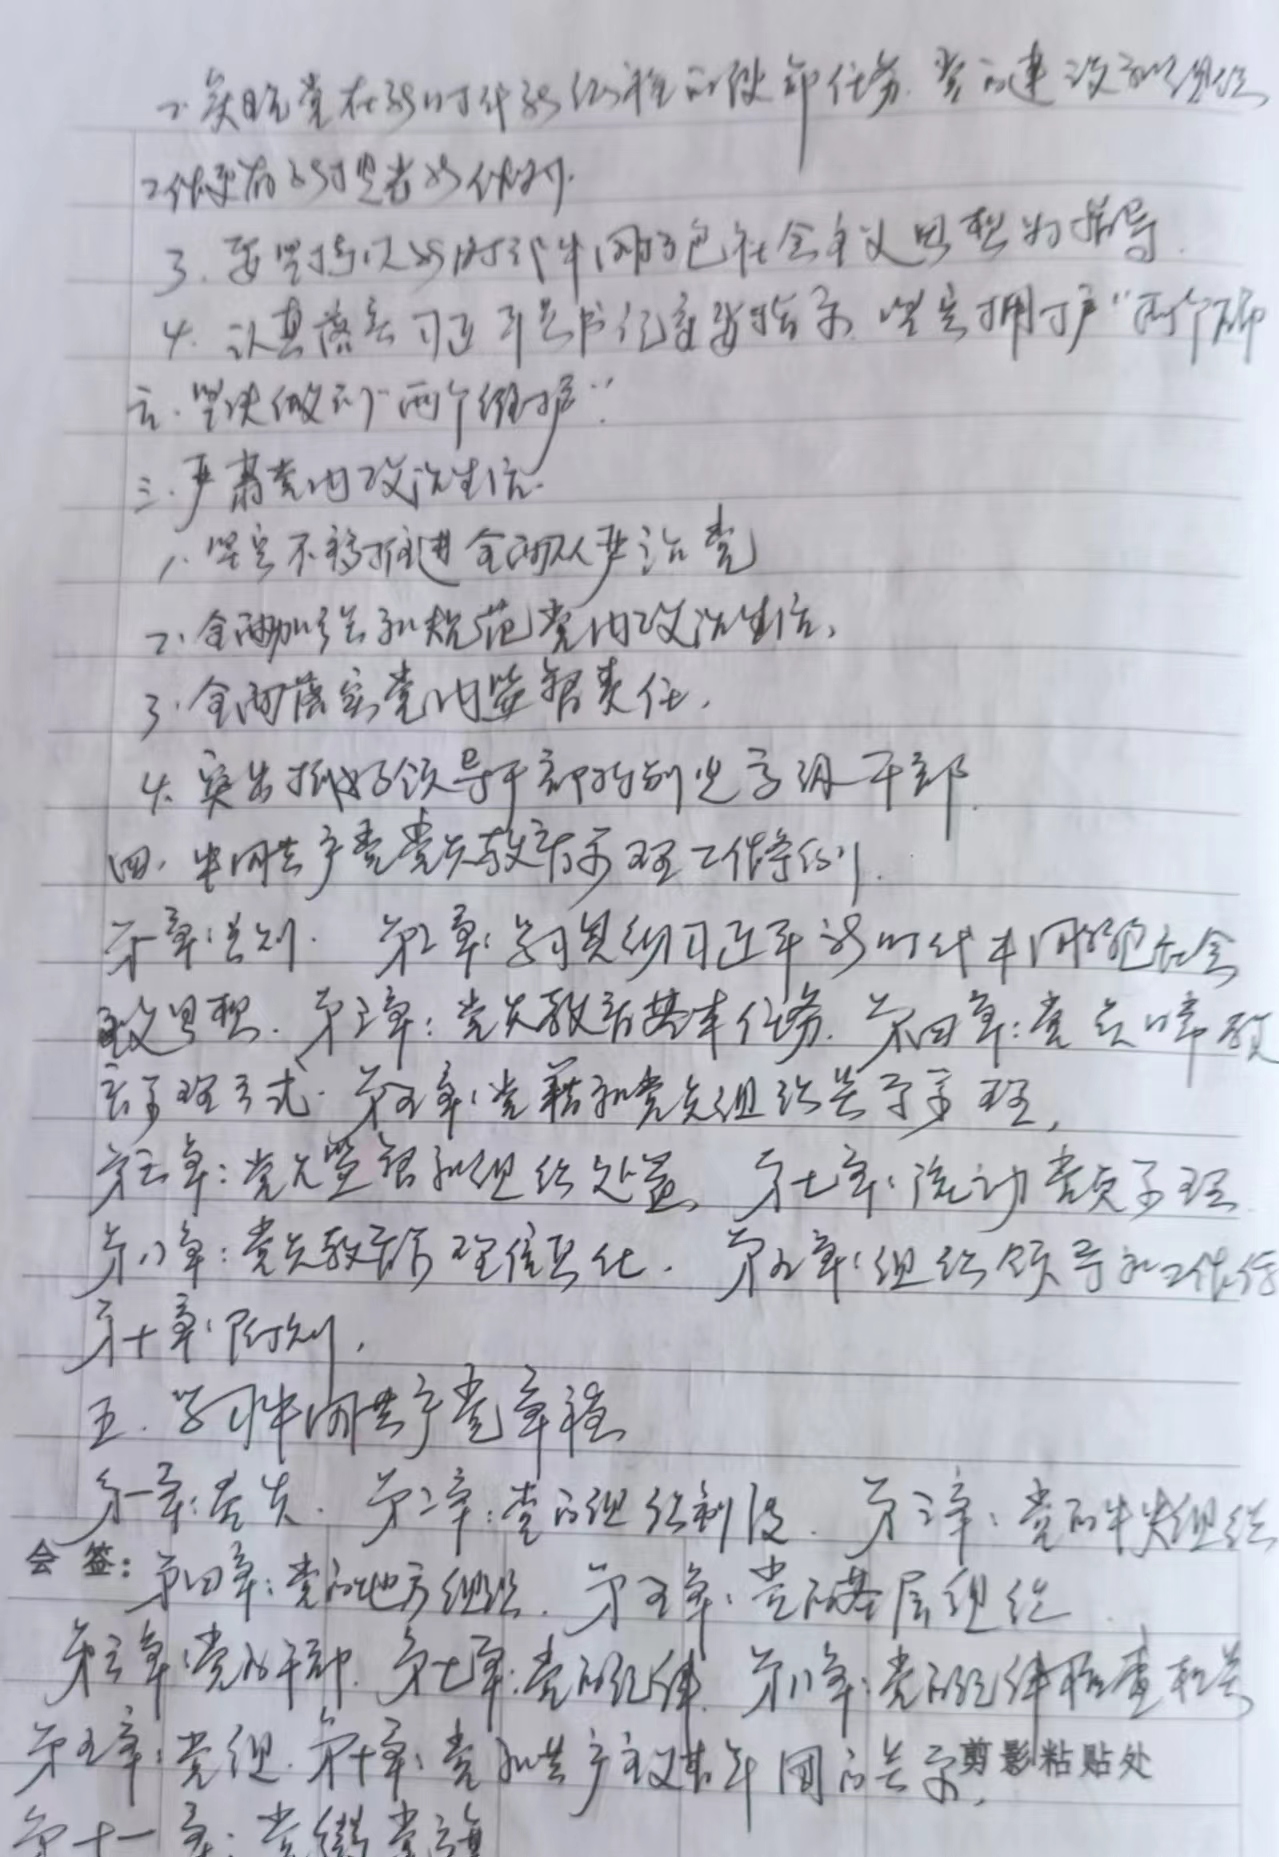 2. 实现党在新时代新征程的使命任务.党的建设和组织
工作要有新担当新作为.
3. 要坚持以新时代中国特色社会主义思想为指导.
4. 认真落实习近平总书记重要指示.坚定拥护"两个确
立.坚决做到"两个维护".
三.严肃党内政治生活.
1. 坚定不移推进全面从严治党
2. 全面加强和规范党内政治生活,
3. 全面落实党内监督责任,
4. 突出抓好领导干部特别是高级干部.
四. 中国共产党党员教育管理工作条例.
第一章:总则. 第二章:学习贯彻习近平新时代中国特色社会
主义思想. 第三章:党员教育基本任务. 第四章:党员日常教
育管理方式. 第五章:党籍和党员组织关系管理,
第六章:党员监督和组织处置, 第七章:流动党员管理.
第八章:党员教育管理信息化. 第九章:组织领导和工作保
第十章:附则,
五. 学习中国共产党章程
第一章:党员. 第二章:党的组织制度. 第三章:党的中央组织
会 签:
第四章:党的地方组织. 第五章:党的基层组织.
第六章:党的干部. 第七章:党的纪律. 第八章:党的纪律检查机关
第九章:党组. 第十章:党和共产主义青年团的关系,
剪影粘贴处
第十一章:党徽党旗